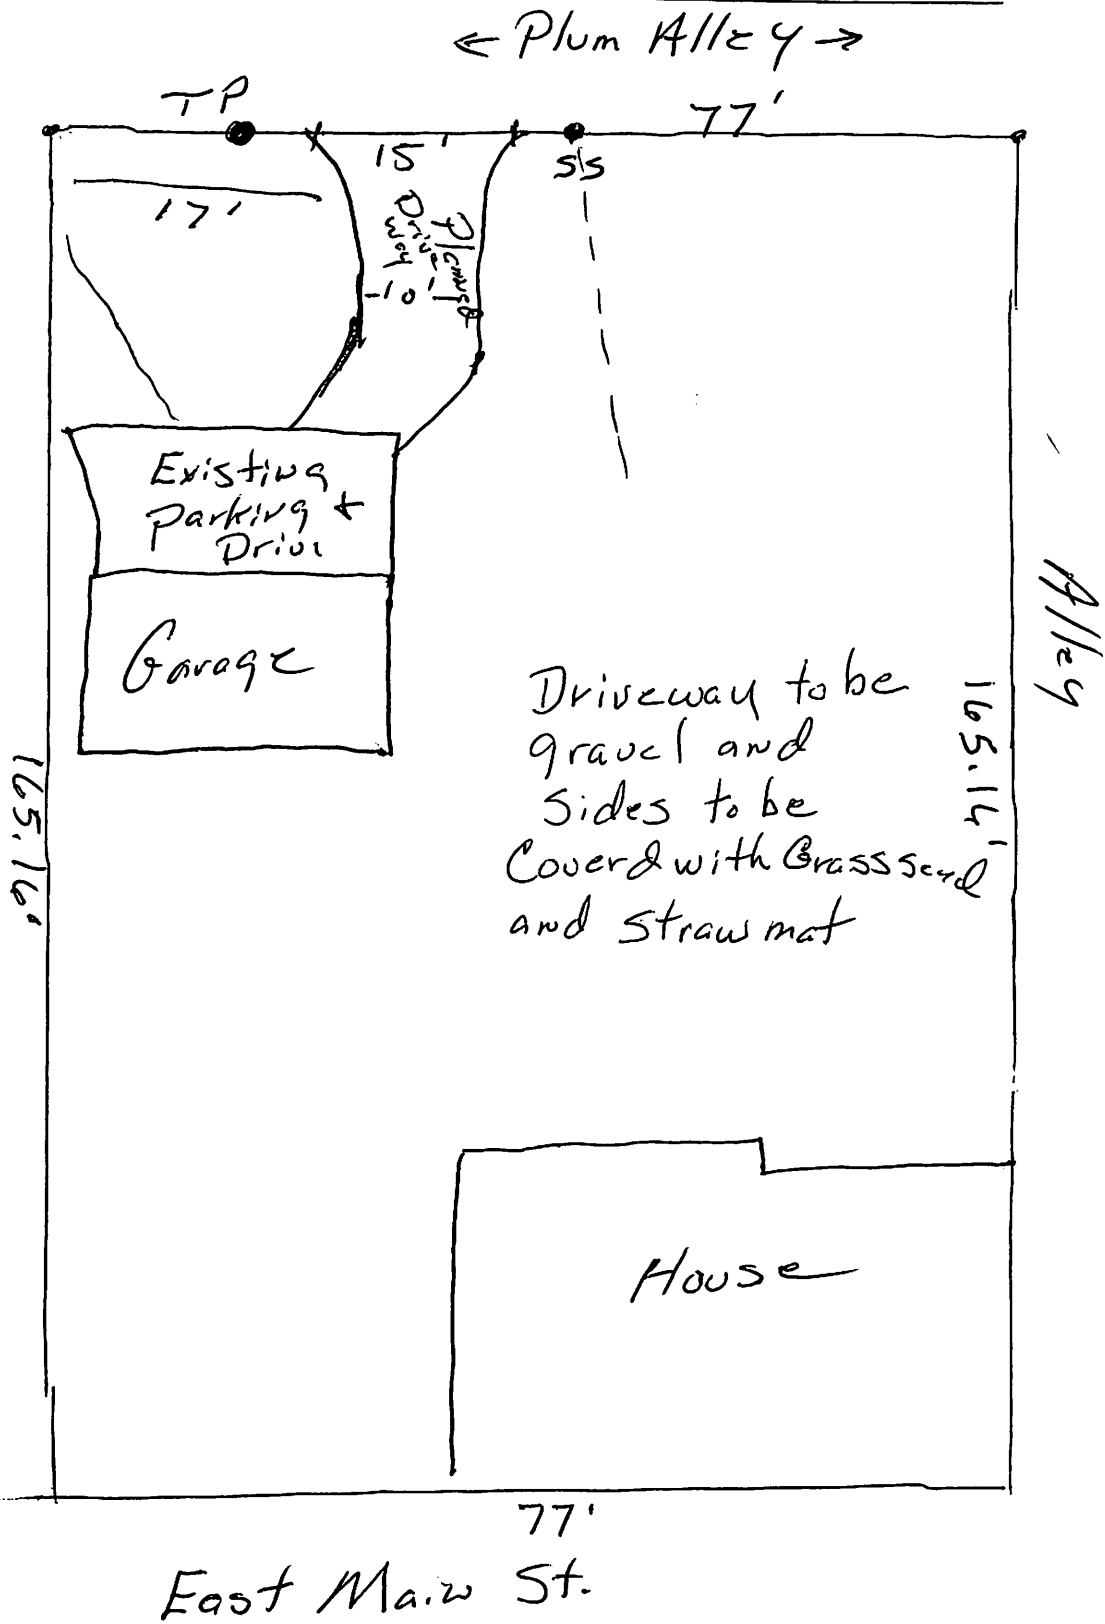 ← Plum Alley →
TP
77'
15'
SS
17'
Planned
Drive
way
-10'-
Existing
Parking +
Drive
Garage
Alley
Driveway to be
gravel and
Sides to be
Coverd with Grass seed
and straw mat
165.14'
165.16'
House
77'
East Main St.